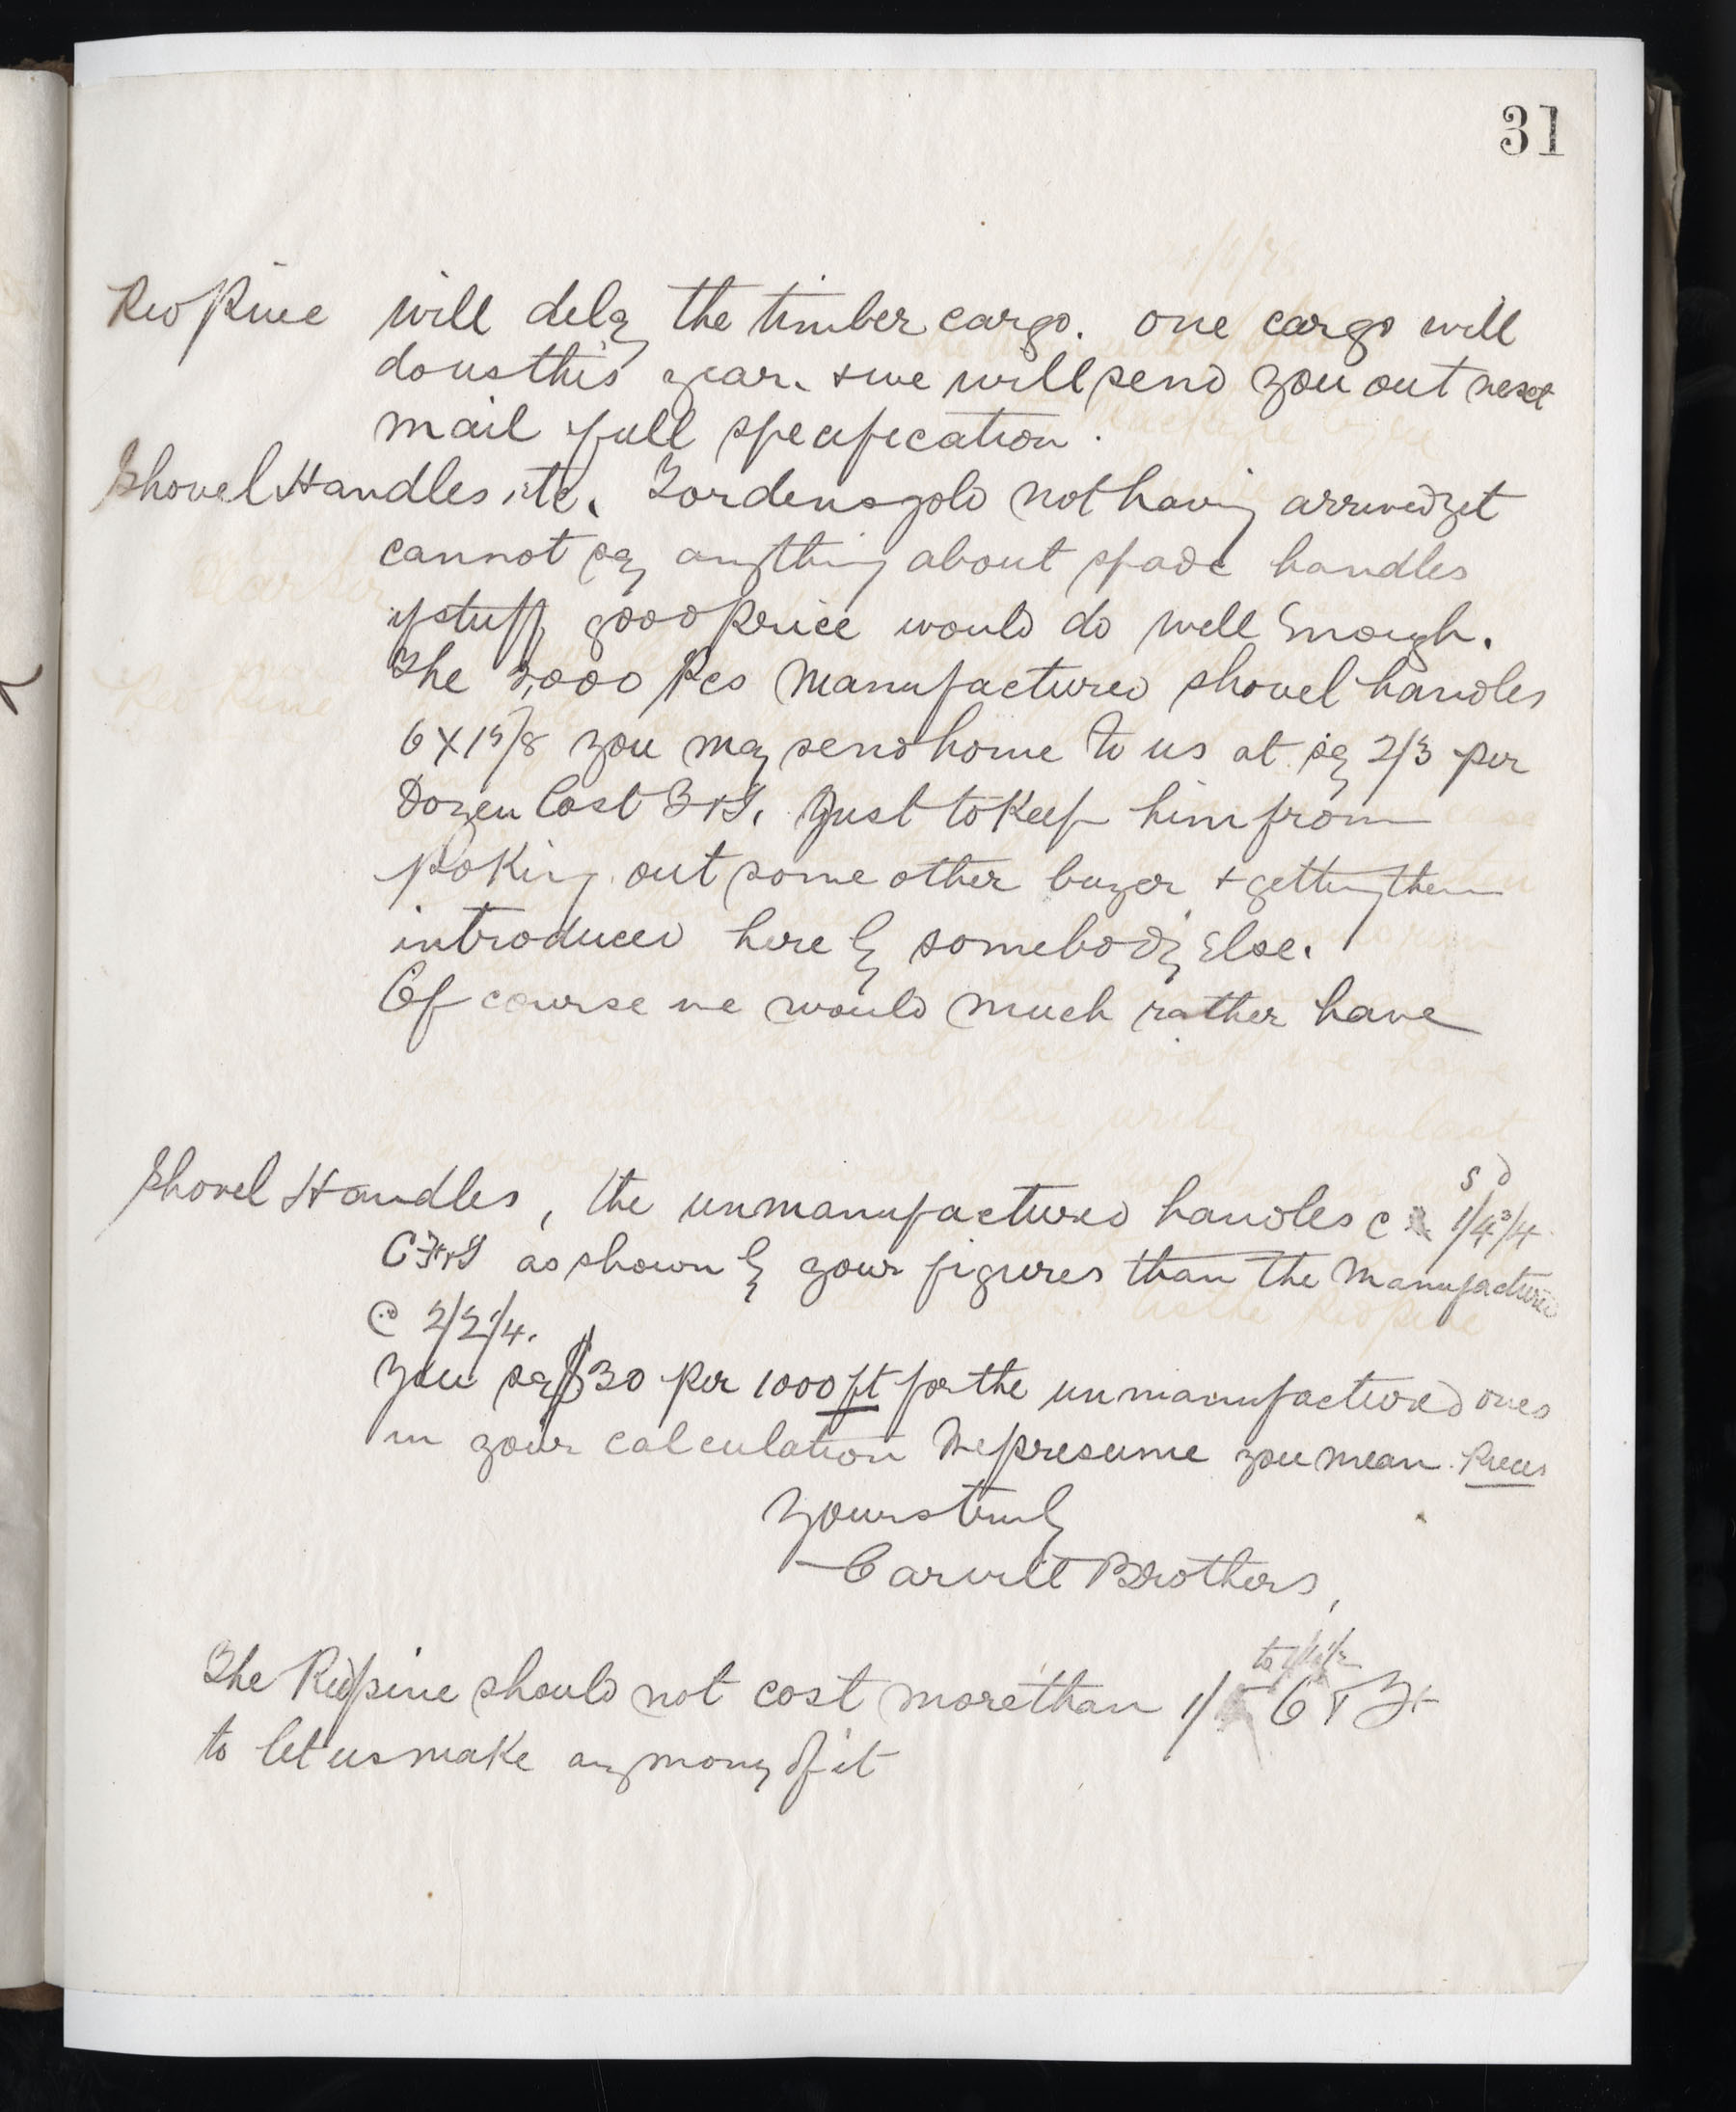 31
Red Pine will delay the timber cargo. One cargo will
do us this year. + we will send you out next
mail full specification.
Shovel Handles etc. Tordensgold not having arrived yet
cannot say anything about spade handles
if stuff good Price would do well Enough.
The 3,000 Pcs Manufactured shovel handles
6 x 1 5/8 you may send home to us at say 2/3 per
Dozen Cost F+I. Just to Keep him from
poking out some other buyer + getting them
introduced here by somebody Else.
Of course we would much rather have
Shovel Handles, the unmanufactured handles @ 1/4 3/4
s d
CF+I as shown by your figures than the Manufactured
@ 2/2 1/4.
You say $30 per 1000 ft for the unmanufactured ones
in your calculation We presume you mean Pieces
Yours truly
Carvill Brothers,
The Red pine should not cost more than 1/ 6
to let us make any money of it